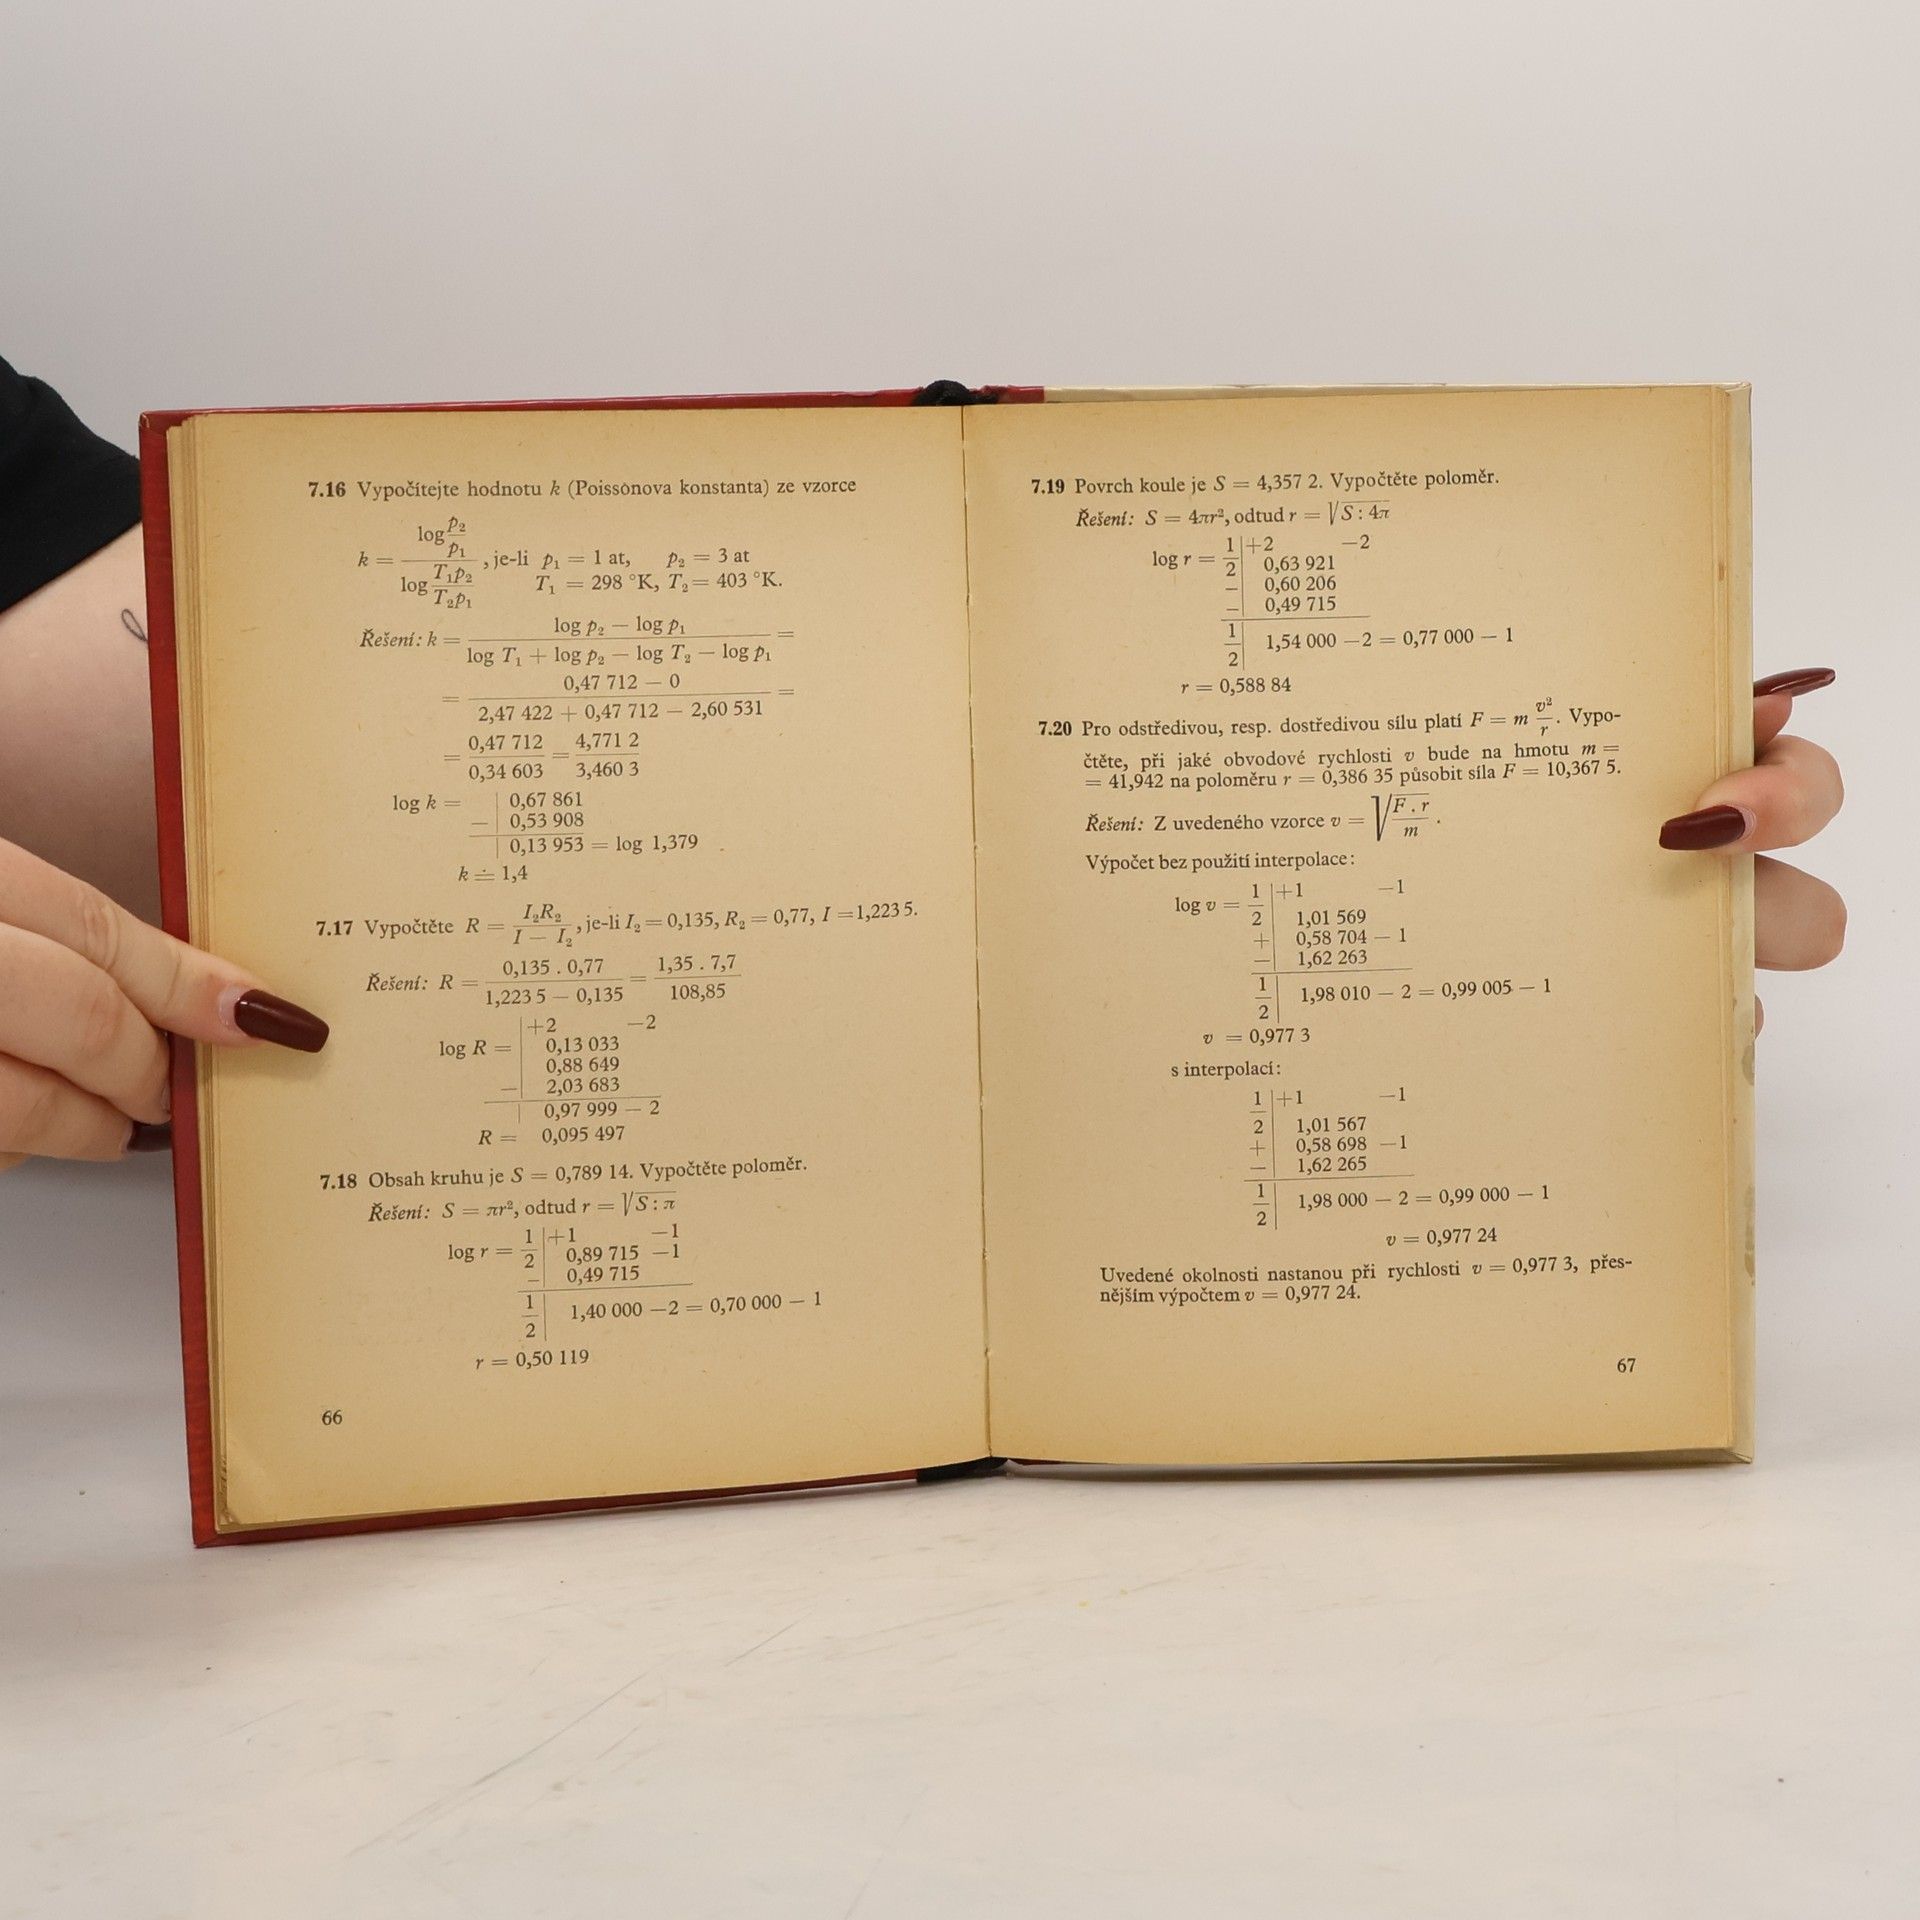 7.16 Vypočítejte hodnotu k (Poissonova konstanta) ze vzorce
k = log p₂/p₁ / log T₁p₂/T₂p₁ , je-li p₁ = 1 at, p₂ = 3 at
T₁ = 298 °K, T₂ = 403 °K.
Řešení: k = (log p₂ − log p₁) / (log T₁ + log p₂ − log T₂ − log p₁) =
= (0,47 712 − 0) / (2,47 422 + 0,47 712 − 2,60 531) =
= 0,47 712 / 0,34 603 = 4,771 2 / 3,460 3
log k = | 0,67 861
− | 0,53 908
| 0,13 953 = log 1,379
k ≐ 1,4
7.17 Vypočtěte R = I₂R₂ / (I − I₂) , je-li I₂ = 0,135, R₂ = 0,77, I = 1,223 5.
Řešení: R = 0,135 . 0,77 / (1,223 5 − 0,135) = 1,35 . 7,7 / 108,85
log R = | +2 −2
0,13 033
0,88 649
− | 2,03 683
| 0,97 999 − 2
R = 0,095 497
7.18 Obsah kruhu je S = 0,789 14. Vypočtěte poloměr.
Řešení: S = πr², odtud r = √S : π
log r = 1/2 | +1 −1
0,89 715 −1
− | 0,49 715
1/2 | 1,40 000 −2 = 0,70 000 − 1
r = 0,50 119
66
7.19 Povrch koule je S = 4,357 2. Vypočtěte poloměr.
Řešení: S = 4πr², odtud r = √S : 4π
log r = 1/2 | +2 −2
0,63 921
− | 0,60 206
− | 0,49 715
1/2 | 1,54 000 −2 = 0,77 000 − 1
r = 0,588 84
7.20 Pro odstředivou, resp. dostředivou sílu platí F = m v²/r. Vypo-
čtěte, při jaké obvodové rychlosti v bude na hmotu m =
= 41,942 na poloměru r = 0,386 35 působit síla F = 10,367 5.
Řešení: Z uvedeného vzorce v = √(F . r / m) .
Výpočet bez použití interpolace:
log v = 1/2 | +1 −1
1,01 569
+ | 0,58 704 − 1
− | 1,62 263
1/2 | 1,98 010 − 2 = 0,99 005 − 1
v = 0,977 3
s interpolací:
1/2 | +1 −1
1,01 567
+ | 0,58 698 −1
− | 1,62 265
1/2 | 1,98 000 − 2 = 0,99 000 − 1
v = 0,977 24
Uvedené okolnosti nastanou při rychlosti v = 0,977 3, přes-
nějším výpočtem v = 0,977 24.
67